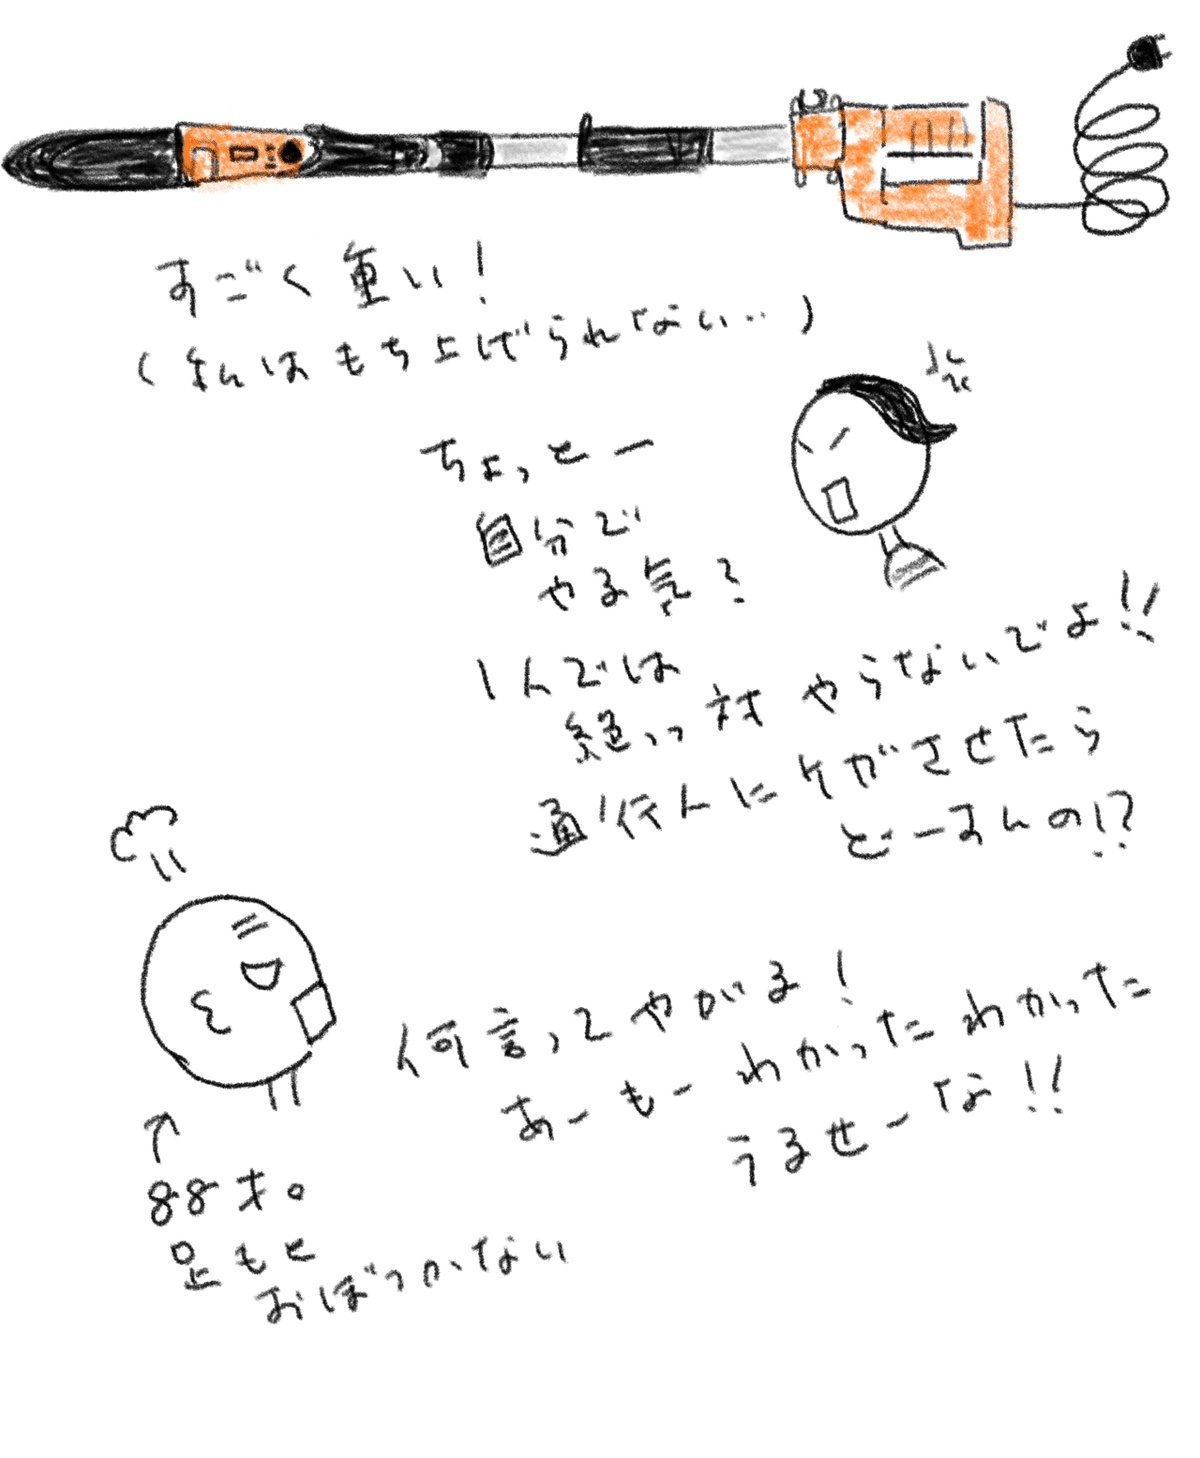 すごく重い!
(私はもち上げられない‥)
ちょっとー
自分で
やる気?
1人では
絶っ対やらないでよ!!
通行人にケガさせたら
どーすんの!?
何言ってやがる!
あーもーわかったわかった
うるせーな!!
↑
88才。
足もと
おぼつかない